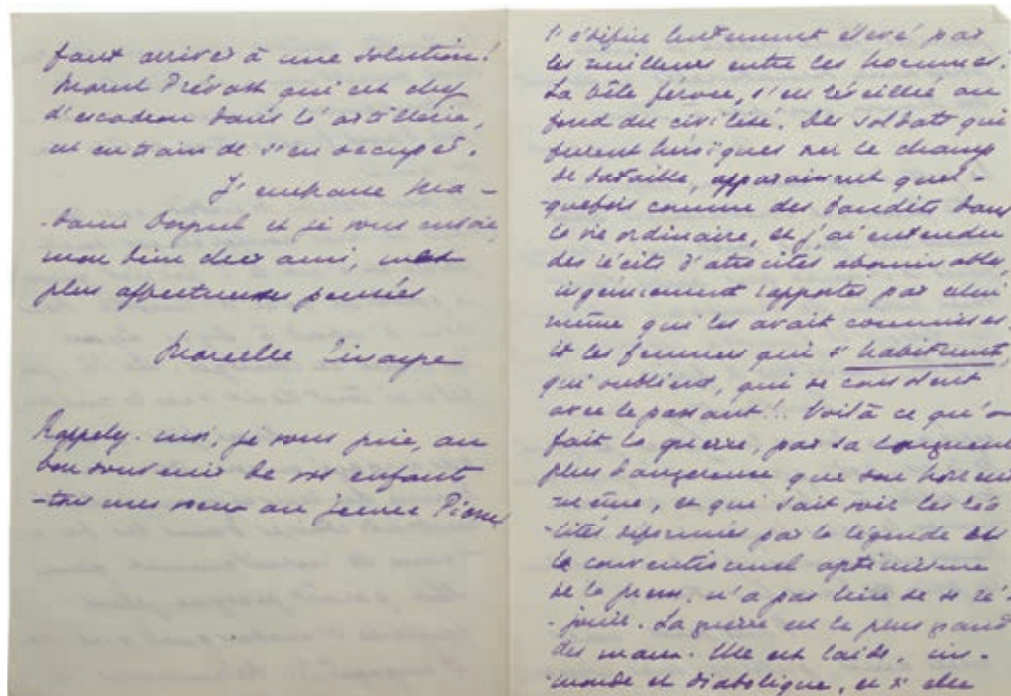 faut arriver à une solution!
Marcel Prévost qui est chef
d'escadron dans l'artillerie,
est en train de s'en occuper.
J'embrasse Ma-
-dame et je vous envoie,
mon bien cher ami, mes
plus affectueuses pensées
Marcelle Tinayre
Rappelez-moi, je vous prie, au
bon souvenir de vos enfants
-tous mes vœux au jeune Pierre
l'édifice lentement élevé par
les meilleurs entre les hommes.
La bête féroce, s'est réveillée au
fond du civilisé. Des soldats qui
furent héroïques sur le champ
de bataille, apparaissent quel-
-quefois comme des bandits dans
la vie ordinaire, et j'ai entendu
des récits d'atrocités abominables,
ingénuement rapportés par celui
même qui les avait commises.
Et les femmes qui s'habituent,
qui oublient, qui se consolent
avec le passant!.. Voilà ce qu'a
fait la guerre, par sa longueur
plus dangereuse que son horreur
même, et qui sait voir les réa-
-lités déformées par la légende et
le conventionnel optimisme
de la presse, n'a pas lieu de se ré-
-jouir. La guerre est le plus grand
des maux. Elle est laide, im-
-monde et diabolique, et si elle